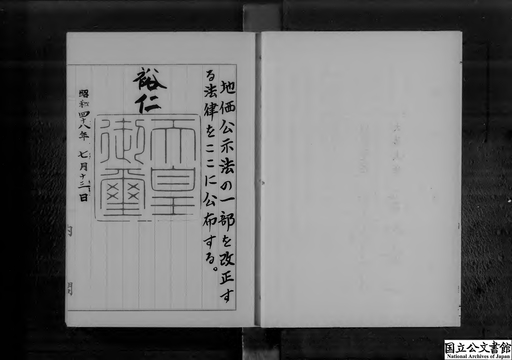 地価公示法の一部を改正す
る法律をここに公布する。
裕仁
天皇
御璽
昭和四十八年 七月十三日
国立公文書館
National Archives of Japan